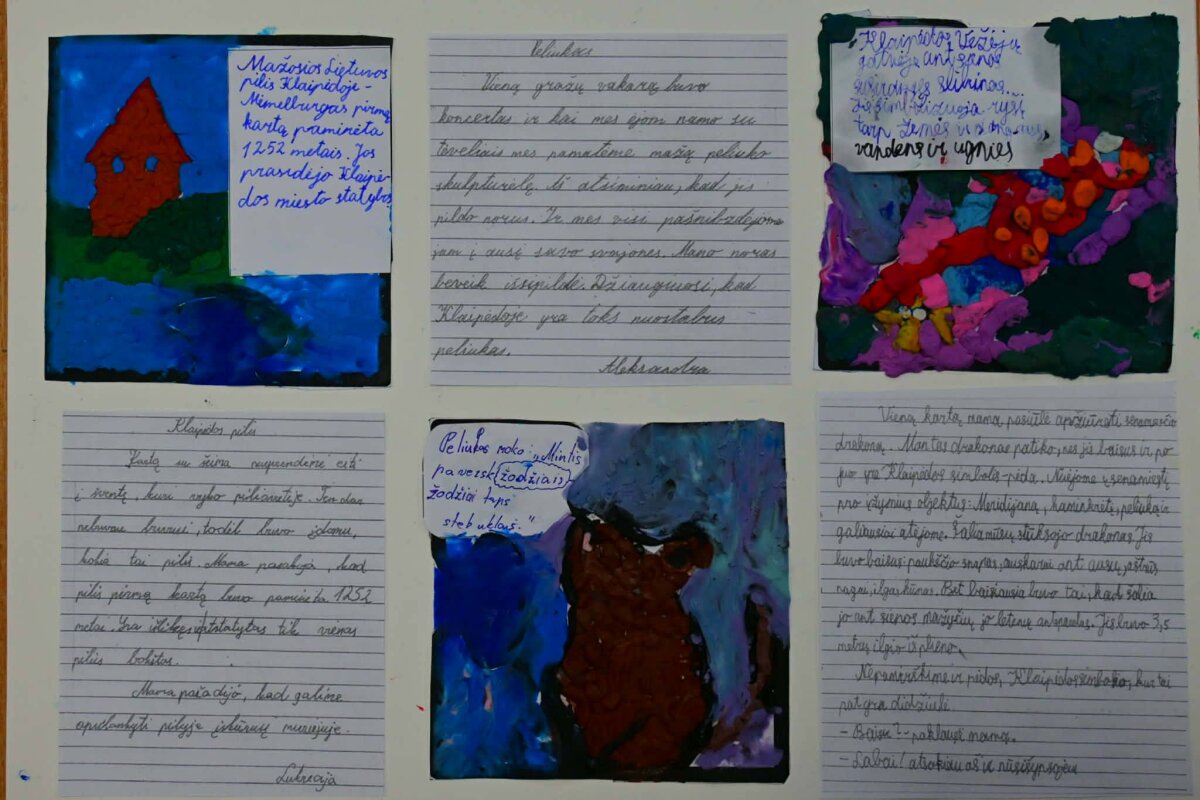 Mažosios Lietuvos
pilis Klaipėdoje -
Mėmelburgas pirmą
kartą paminėta
1252 metais. Jos
prasidėjo Klaipė-
dos miesto statybos
Peliukas
Vieną gražų vakarą buvo
koncertas ir kai mes ėjom namo su
tėveliais mes pamatėme mažą peliuko
skulpturėlę. Aš atsiminiau, kad jis
pildo norus. Ir mes visi pašnibždėjome
jam į ausį savo svajones. Mano noras
beveik išsipildė. Džiaugiuosi, kad
Klaipėdoje yra toks nuostabus
peliukas.
Aleksandra
Klaipėdos Vežėjų
gatvėje ant sienos
slibinas...
ryšį
tarp žemės
vandens ir ugnies
Klaipėdos pilis
Kartą su šeima nusprendėme eiti
į šventę, kuri vyko piliavietėje. Ten dar
nebuvau buvusi, todėl buvo įdomu,
kokia tai pilis. Mama pasakojo, kad
pilis pirmą kartą buvo paminėta 1252
metai. Yra atstatytas tik vienas
pilies bokštas.
Mama pažadėjo, kad galime
apsilankyti pilyje įsikūrusį muziejuje.
Lukrecija
Peliukas moko: „Mintis
paversk žodžiais
žodžiai taps
stebuklais."
Vieną kartą mama pasiūlė apžiūrėti senamiesčio
drakoną. Man tas drakonas patiko, nes jis baisus ir po
juo yra Klaipėdos simbolis-pėda. Nuėjome į senamiestį
pro objektus: Meridijaną, kaminkrėtį, peliuką ir
galiausiai atėjome. Šalia mūsų stūksojo drakonas. Jis
buvo baisus: paukščio snapas, auskarai ant ausų, aštrūs
nagai, ilgas kūnas. Bet baisiausia buvo tai, kad šalia
jo ant sienos mažyčių jo letenų antspaudas. Jis buvo 3,5
metrų ilgio iš plieno.
Nepamirškime ir pėdos, Klaipėdos simbolio, kuri tai
pat yra didžiulė.
- Baisu? - paklausė mama.
- Labai! atsakiau aš ir nusišypsojau